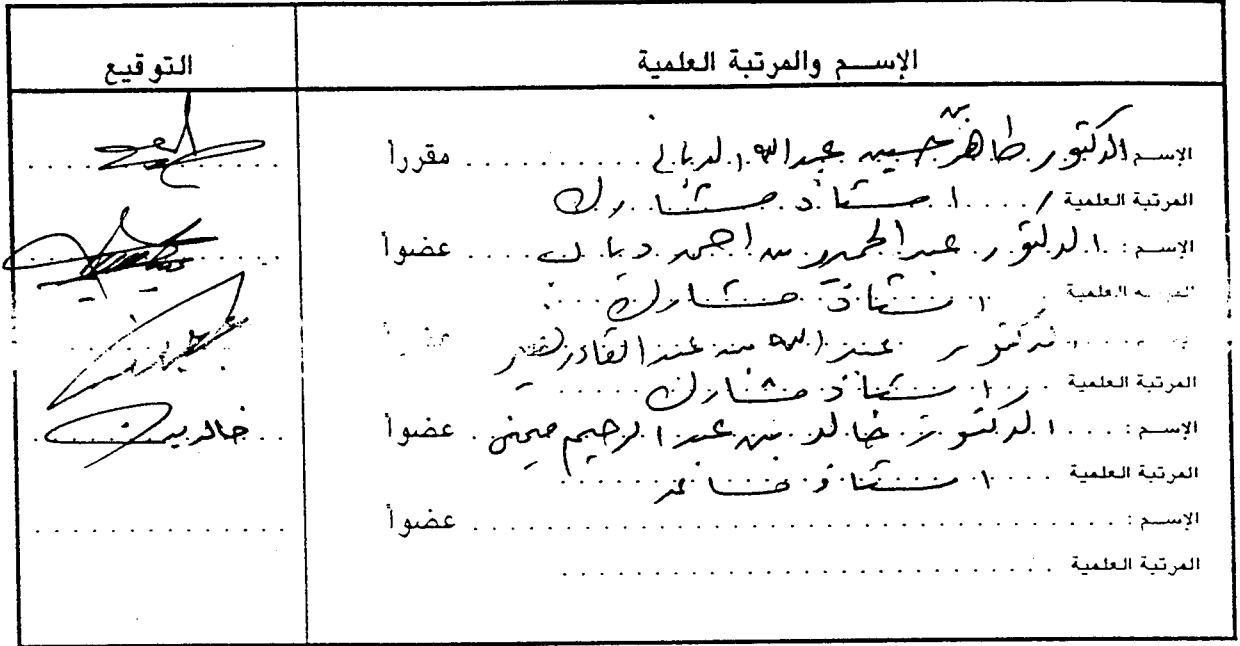 الإسم والمرتبة العلمية التوقيع
الإسم الدكتور طاهر بن حسين عبدالله الدباغ مقرراً
المرتبة العلمية / استاذ مشارك
الإسم : الدكتور عبدالحميد بن احمد دياب عضواً
العلمية استاذ مشارك
دكتور عبدالله بن عبدالقادر
المرتبة العلمية استاذ مشارك
الإسم : الدكتور خالد بن عبدالرحيم ميمني عضواً
المرتبة العلمية استاذ مساعد
الإسم : عضواً
المرتبة العلمية